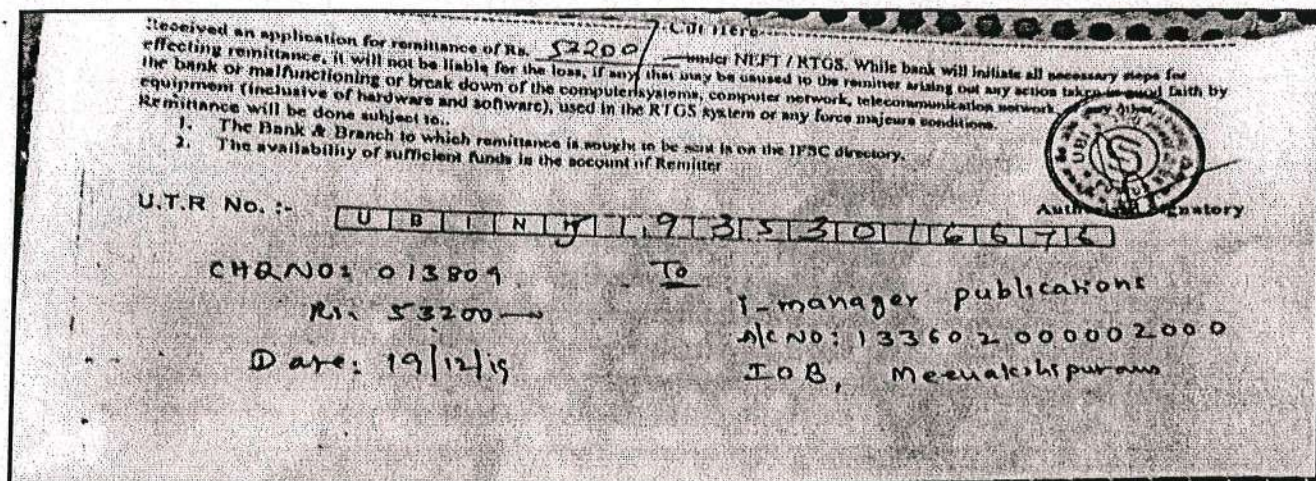 Cut Here
Received an application for remittance of Rs. 53200/ under NEFT / RTGS. While bank will initiate all necessary steps for
effecting remittance, it will not be liable for the loss, if any that may be caused to the remitter arising out any action taken in good faith by
the bank or malfunctioning or break down of the computer systems, computer network, telecommunication network any other
equipment (inclusive of hardware and software), used in the RTGS system or any force majeure conditions.
Remittance will be done subject to..
1. The Bank & Branch to which remittance is sought to be sent is on the IFSC directory.
2. The availability of sufficient funds in the account of Remitter
UBI
Signatory
U.T.R No. :- U B I N 1 9 3 5 3 0 1 6 6 7 6
CHQ NO: 013809
Rs. 53200
Date: 19/12/19
To
i-manager publications
A/C NO: 133602000002000
IOB, Meenakshipuram